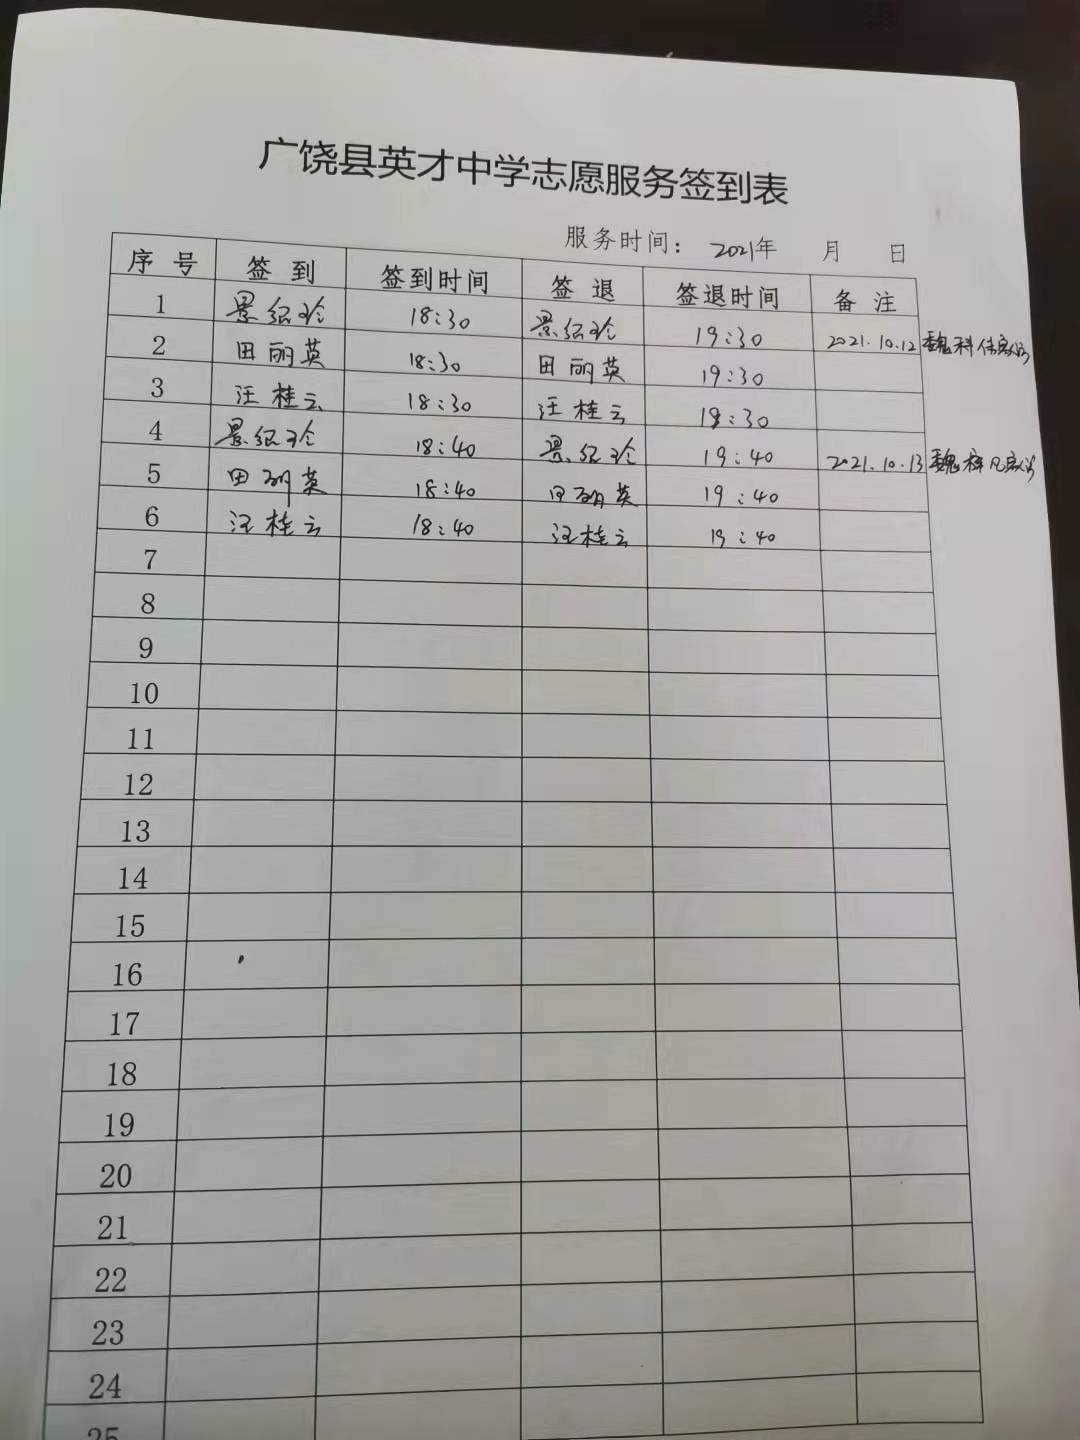 广饶县英才中学志愿服务签到表
服务时间： 2021年 月 日
序 号 签 到 签到时间 签 退 签退时间 备 注
1 景纪玲 18:30 景纪玲 19:30 2021.10.12 魏科
2 田丽英 18:30 田丽英 19:30
3 汪桂云 18:30 汪桂云 19:30
4 景纪玲 18:40 景纪玲 19:40 2021.10.13 魏
5 田丽英 18:40 田丽英 19:40
6 汪桂云 18:40 汪桂云 19:40
7
8
9
10
11
12
13
14
15
16
17
18
19
20
21
22
23
24
25